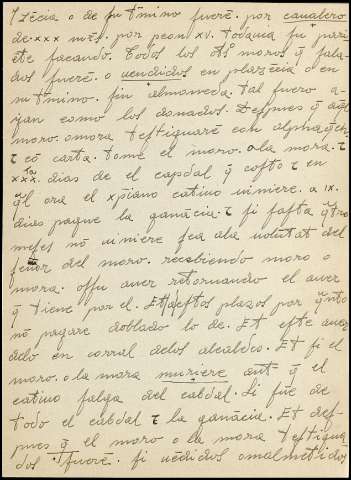 plazēcia o de ſu t̄mino fuerē. por cauallero
de .xxx mrs̄. por peon xv. todauia ſu pari
ēte ſacando. Todos los otros moros q̄ falla
dos fuerē. o uendidos en plazēcia o en
su t̄mino. ſin almoneda. tal fuero a-
yan como los donados. Deſpues q̄ aquel
moro. o mora teſtiguarē con alphaq̄q̄.
τ cō carta. tome el moro. o la mora. τ
.xxx. dias de el capdal q̄ coſto τ en
q̄l ora el xp̄iano catiuo uiniere. a ix.
dias pague la ganācia. τ ſi faſta q̄tro
meſes nō uiniere ſea a la uolūtat del
ſeñor del moro. recebiendo moro o
mora. o ſſu auer retornando el auer
q̄ tiene por el. Et ſi aeſtos plazos por q̄nto
nō pagare doblado lo de. Et eſte auer
delo en corral delos alcaldes. Et ſi el
moro. o la mora muriere ant̄ q̄ el
catiuo ſalga del cabdal. Si fūe de
todo el cabdal τ la ganācia. Et deſ-
pues q̄ el moro o la mora teſtigua
dos fuerē. ſi uēdidos o malmetidos